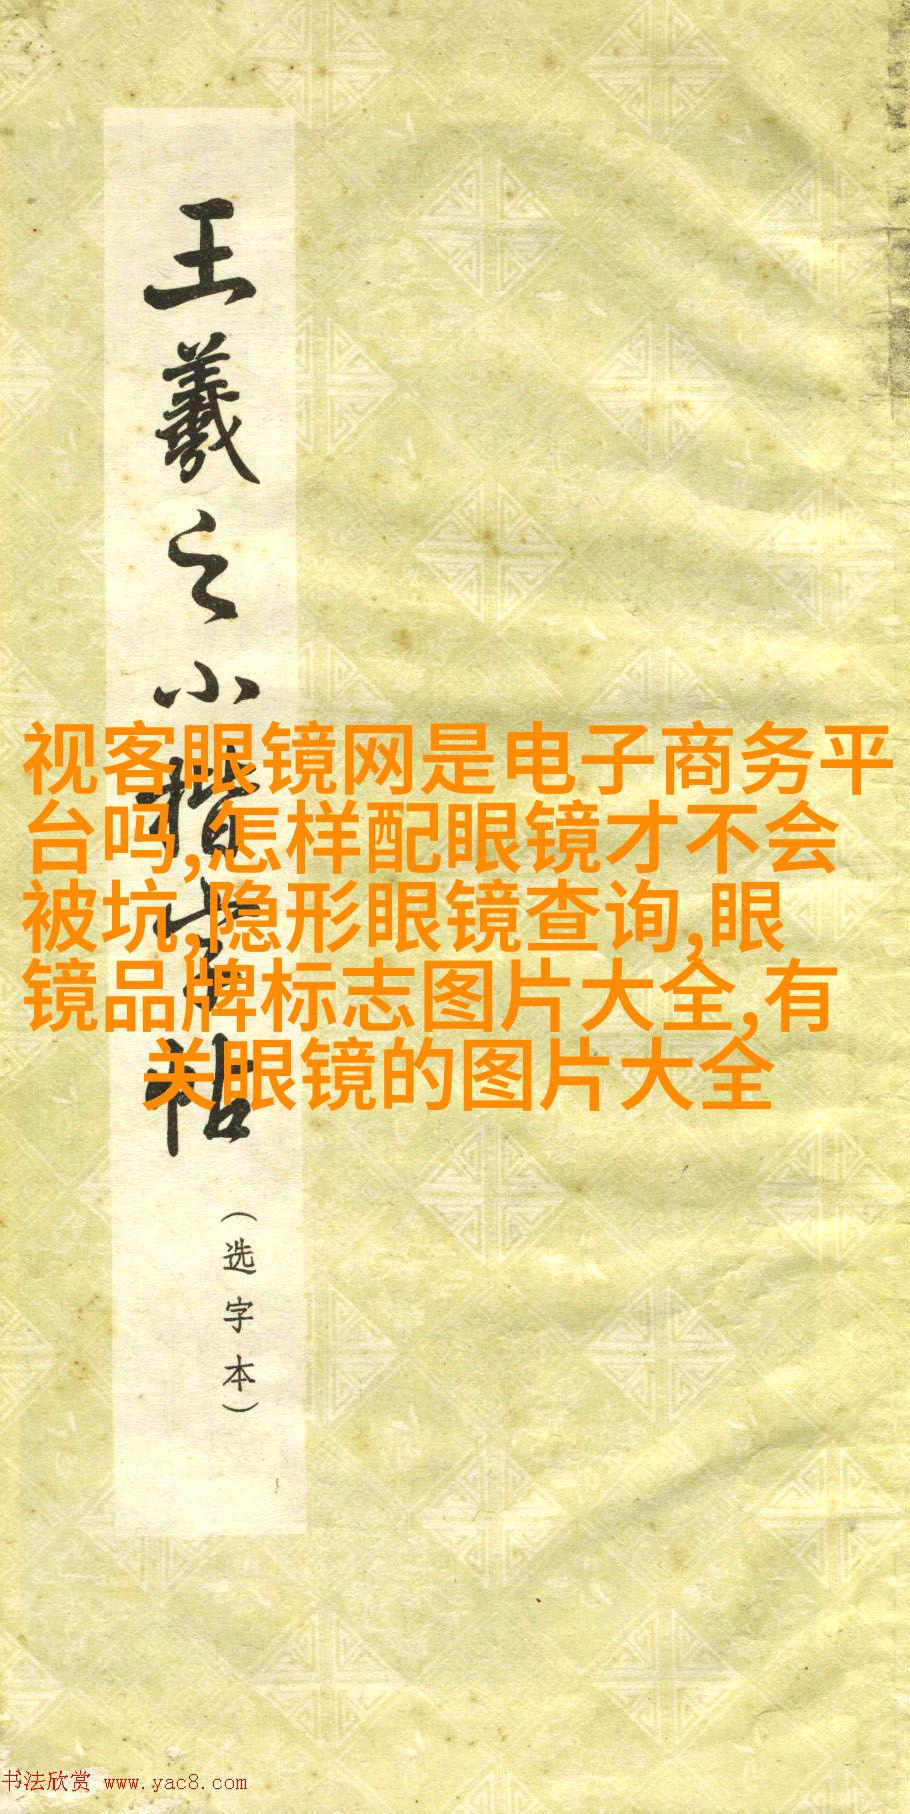 王羲之小楷字帖
(选字本)
视客眼镜网是电子商务平
台吗,怎样配眼镜才不会
被坑,隐形眼镜查询,眼
镜品牌标志图片大全,有
关眼镜的图片大全
书法欣赏 www.yac8.com